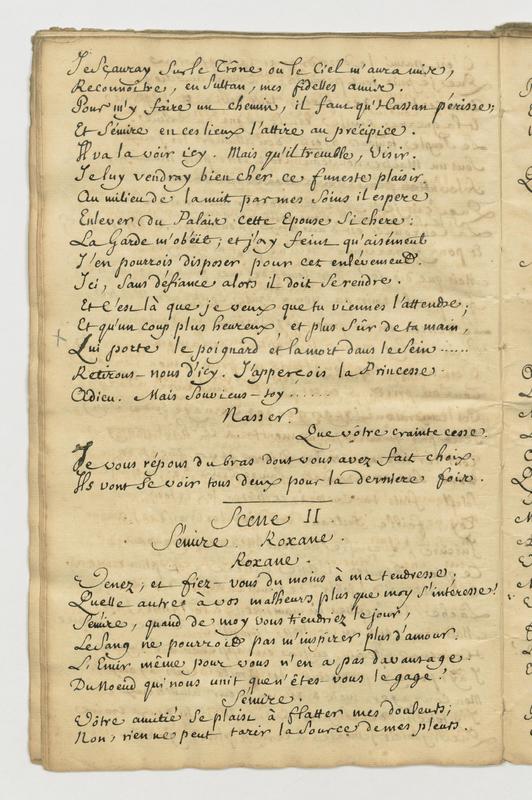 Je Sçauray Sur le Trône ou le Ciel m'aura mis,
Reconnoitre, en Sultan, mes fidelles amis.
Pour m'y faire un chemin, il faut qu'Hassan périsse;
Et Sémire en ces lieux l'attire au précipice.
Il va la voir icy. Mais qu'il tremble, Visir.
Je luy vendray bien cher ce funeste plaisir.
Au milieu de la nuit par mes Soins il espere
Enlever du Palais cette Epouse Si chere:
La Garde m'obéit; et j'ay feint qu'aisément
J'en pourrois disposer pour cet enlévement.
Ici, Sans défiance alors il doit Se rendre.
Et C'est là que je veux que tu viennes l'attendre;
Et qu'un coup plus heureux, et plus Sûr de ta main,
Lui porte le poignard et la mort dans le Sein......
Retirons-nous d'icy. J'apperçois la Princesse.
Adieu. Mais Souviens-toy......
Nasser.
Que vôtre crainte cesse.
Je vous répons du bras dont vous avez fait choix.
Ils vont Se voir tous deux pour la derniere fois.
Scene II
Sémire. Roxane.
Roxane.
Venez, et fiez-vous du moins à ma tendresse.
Quelle autre à vos malheurs plus que moy S'interesse!
Sémire, quand de moy vous tiendriez le jour,
Le Sang ne pourroit pas m'inspirer plus d'amour.
L'Emir même pour vous n'en a pas davantage.
Du Noeud qui nous unit que n'êtes vous le gage!
Sémire.
Vôtre amitié Se plaist à flatter mes douleurs;
Non, rien ne peut tarir la Source de mes pleurs.